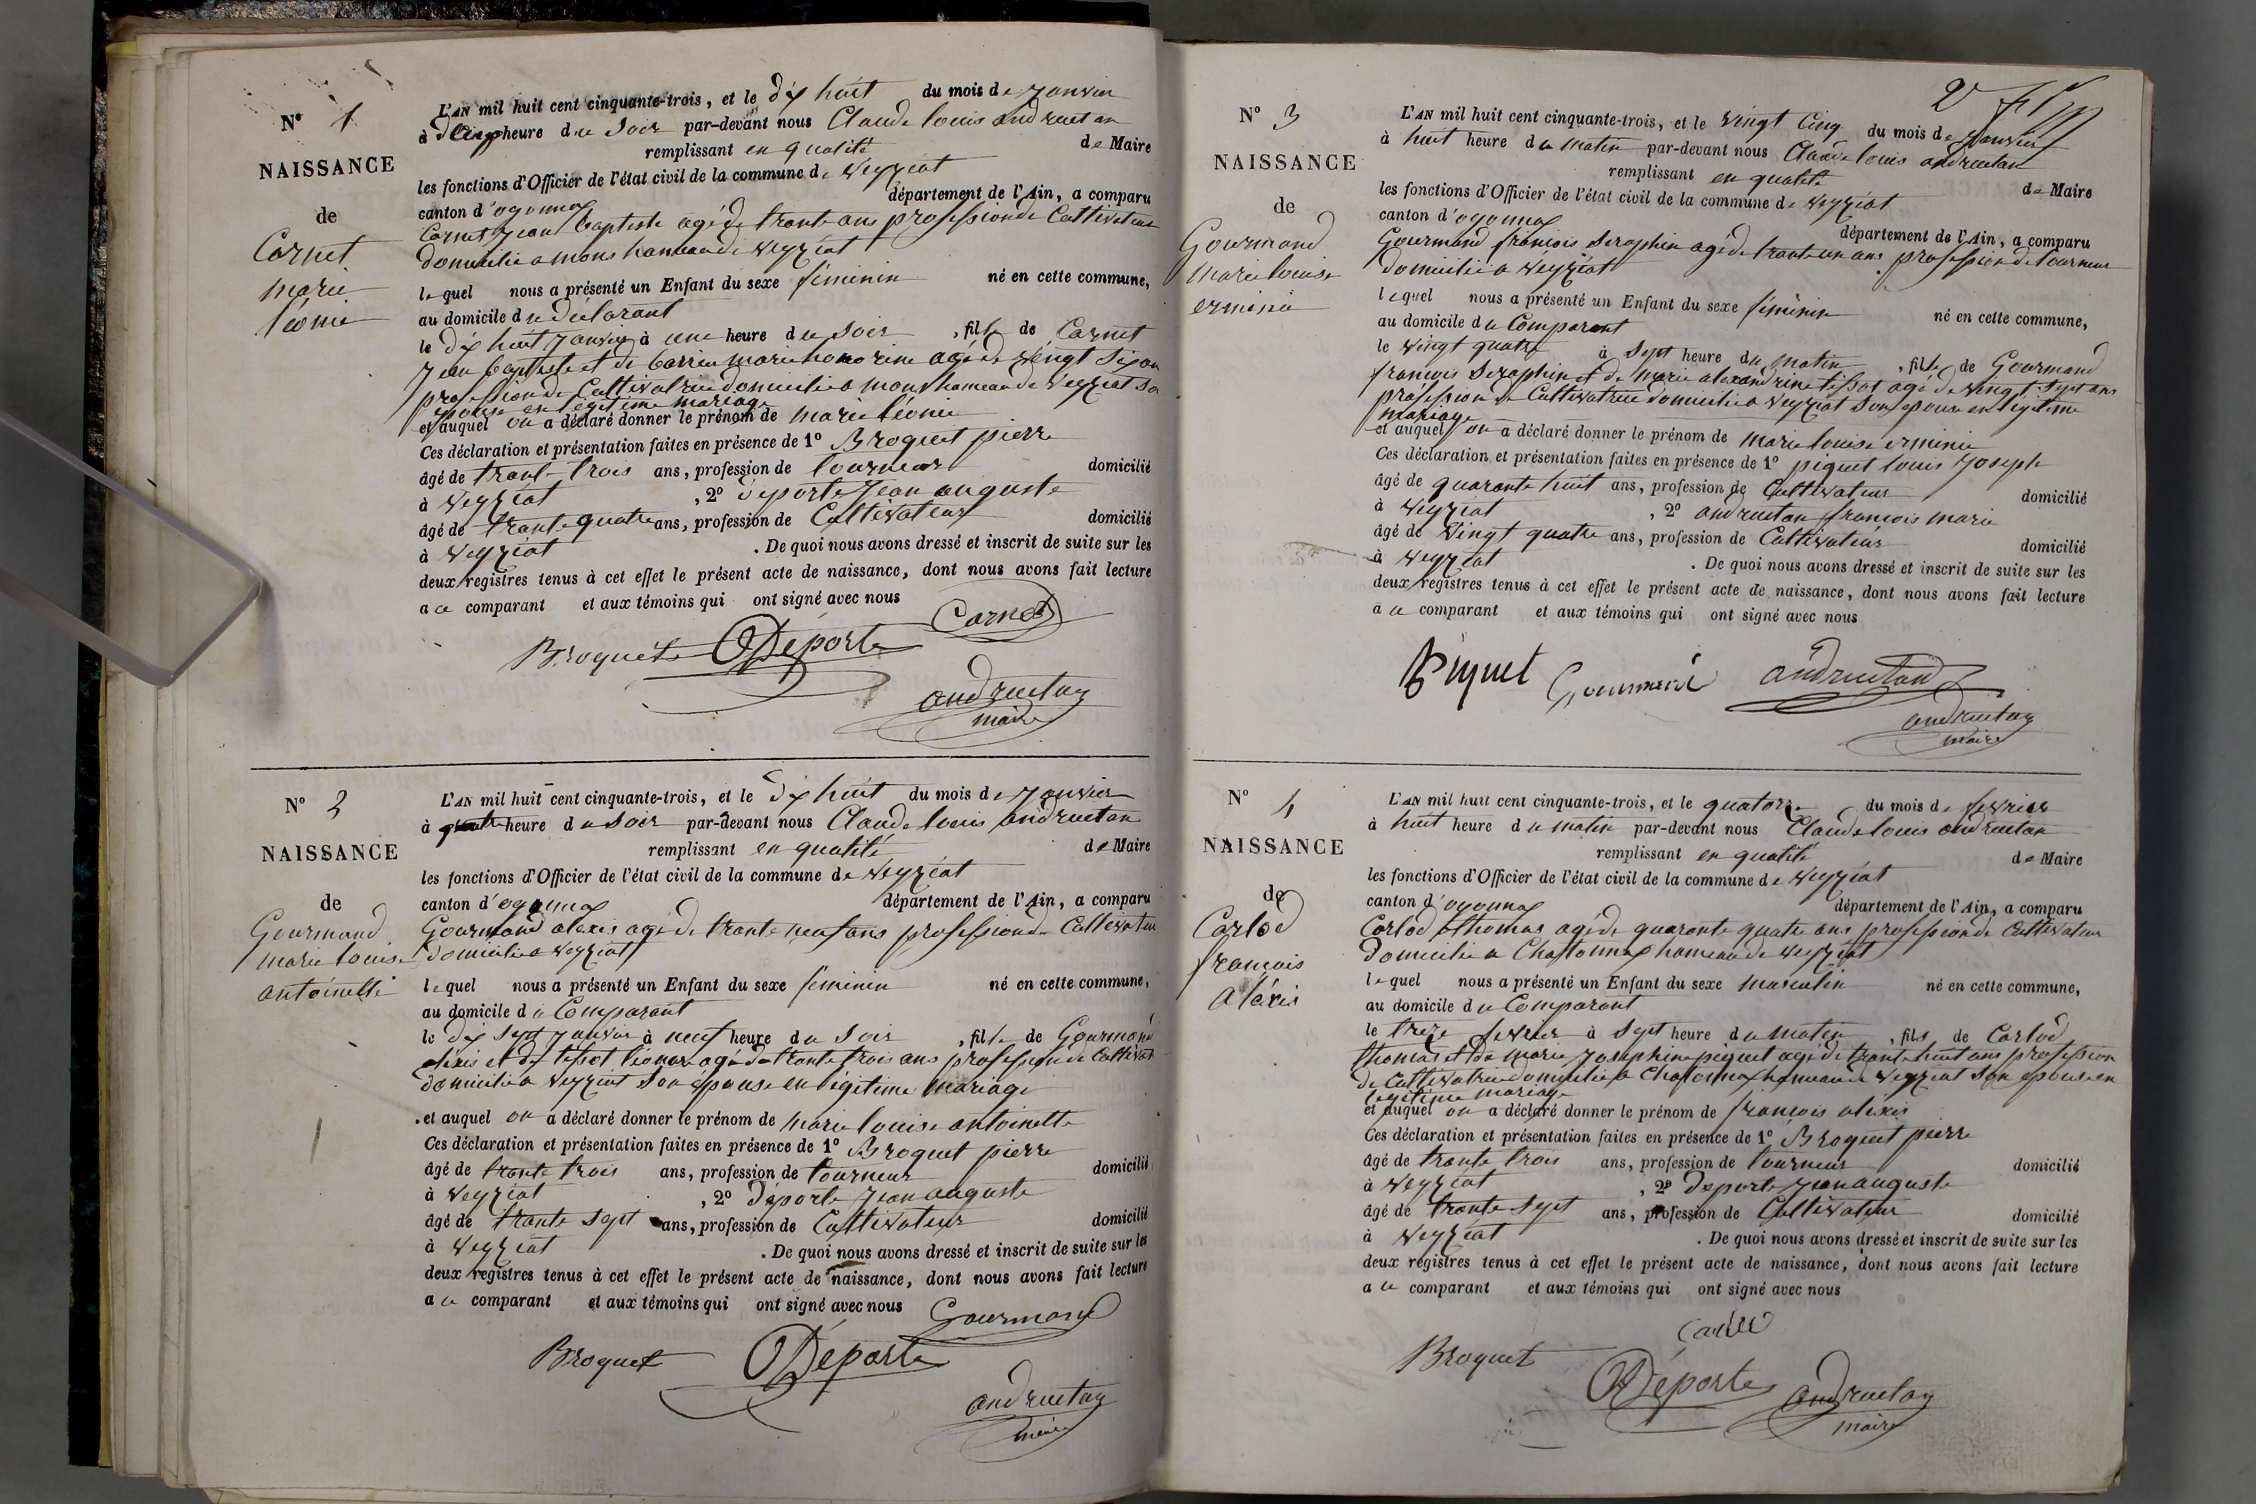 N° 1
NAISSANCE
de
Carnet
marie
léonie
L'AN mil huit cent cinquante-trois, et le dix huit du mois de janvier
à cinq heure du soir par-devant nous Claude louis andruetan
remplissant en qualité de Maire
les fonctions d'Officier de l'état civil de la commune de veyziat
canton d'oyonnax département de l'Ain, a comparu
Carnet jean baptiste agé de trante ans profession de Cultivateur
domicilié a mons hameau de veyziat
lequel nous a présenté un Enfant du sexe féminin né en cette commune,
au domicile du déclarant
le dix huit janvier à une heure du soir, fille de Carnet
jean baptiste et de marie honorine agée de vingt six ans
profession de Cultivatrice domicilié a mons hameau de veyziat son
épouse en légitime mariage
et auquel on a déclaré donner le prénom de marie léonie
Ces déclaration et présentation faites en présence de 1° Broquet pierre
âgé de trante trois ans, profession de tourneur domicilié
à veyziat, 2° déporte jean auguste
âgé de trante quatre ans, profession de Cultivateur domicilié
à veyziat. De quoi nous avons dressé et inscrit de suite sur les
deux registres tenus à cet effet le présent acte de naissance, dont nous avons fait lecture
au comparant et aux témoins qui ont signé avec nous
Carnet
Broquet Déporte
andruetan
maire
N° 2
NAISSANCE
de
Gourmand
marie louise
antoinette
L'AN mil huit cent cinquante-trois, et le dix huit du mois de janvier
à quatre heure du soir par-devant nous Claude louis andruetan
remplissant en qualité de Maire
les fonctions d'Officier de l'état civil de la commune de veyziat
canton d'oyonnax département de l'Ain, a comparu
Gourmand alexis agé de trante neuf ans profession de Cultivateur
domicilié a veyziat
lequel nous a présenté un Enfant du sexe féminin né en cette commune,
au domicile du Comparant
le dix sept janvier à neuf heure du soir, fille de Gourmand
aléxis et de tissot léonore agé de trante trois ans profession de Cultivat
domicilié a veyziat son épouse en légitime mariage
et auquel on a déclaré donner le prénom de marie louise antoinette
Ces déclaration et présentation faites en présence de 1° Broquet pierre
âgé de trante trois ans, profession de tourneur domicilié
à veyziat, 2° déporte jean auguste
âgé de trante sept ans, profession de Cultivateur domicilié
à veyziat. De quoi nous avons dressé et inscrit de suite sur les
deux registres tenus à cet effet le présent acte de naissance, dont nous avons fait lecture
au comparant et aux témoins qui ont signé avec nous
Gourmand
Broquet Déporte
andruetan
maire
2
N° 3
NAISSANCE
de
Gourmand
marie louise
erminie
L'AN mil huit cent cinquante-trois, et le vingt cinq du mois de janvier
à huit heure du matin par-devant nous Claude louis andruetan
remplissant en qualité de Maire
les fonctions d'Officier de l'état civil de la commune de veyziat
canton d'oyonnax département de l'Ain, a comparu
Gourmand francois seraphin agé de trante un ans profession de tourneur
domicilié a veyziat
lequel nous a présenté un Enfant du sexe féminin né en cette commune,
au domicile du Comparant
le vingt quatre à sept heure du matin, fille de Gourmand
francois seraphin et de marie alexandrine tissot agé de vingt sept ans
profession de Cultivatrice domicilié a veyziat son épouse en légitime
mariage
et auquel on a déclaré donner le prénom de marie louise erminie
Ces déclaration et présentation faites en présence de 1° piquet louis joseph
âgé de quarante huit ans, profession de Cultivateur domicilié
à veyziat, 2° andruetan francois marie
âgé de vingt quatre ans, profession de Cultivateur domicilié
à veyziat. De quoi nous avons dressé et inscrit de suite sur les
deux registres tenus à cet effet le présent acte de naissance, dont nous avons fait lecture
au comparant et aux témoins qui ont signé avec nous
Piquet Gourmand andruetan
andruetan
maire
N° 4
NAISSANCE
de
Carlod
francois
aléxis
L'AN mil huit cent cinquante-trois, et le quatorze du mois de fevrier
à huit heure du matin par-devant nous Claude louis andruetan
remplissant en qualité de Maire
les fonctions d'Officier de l'état civil de la commune de veyziat
canton d'oyonnax département de l'Ain, a comparu
Carlod thomas agé de quarante quatre ans profession de Cultivateur
domicilié a Chatonnax hameau de veyziat
lequel nous a présenté un Enfant du sexe masculin né en cette commune,
au domicile du Comparant
le treze fevrier à sept heure du matin, fils de Carlod
thomas et de marie josephine piquet agé de trante huit ans profession
de Cultivatrice domicilié a Chatonnax hameau de veyziat son épouse en
légitime mariage
et auquel on a déclaré donner le prénom de francois aléxis
Ces déclaration et présentation faites en présence de 1° Broquet pierre
âgé de trante trois ans, profession de tourneur domicilié
à veyziat, 2° déporte jean auguste
âgé de trante sept ans, profession de Cultivateur domicilié
à veyziat. De quoi nous avons dressé et inscrit de suite sur les
deux registres tenus à cet effet le présent acte de naissance, dont nous avons fait lecture
au comparant et aux témoins qui ont signé avec nous
Broquet
Déporte andruetan
maire